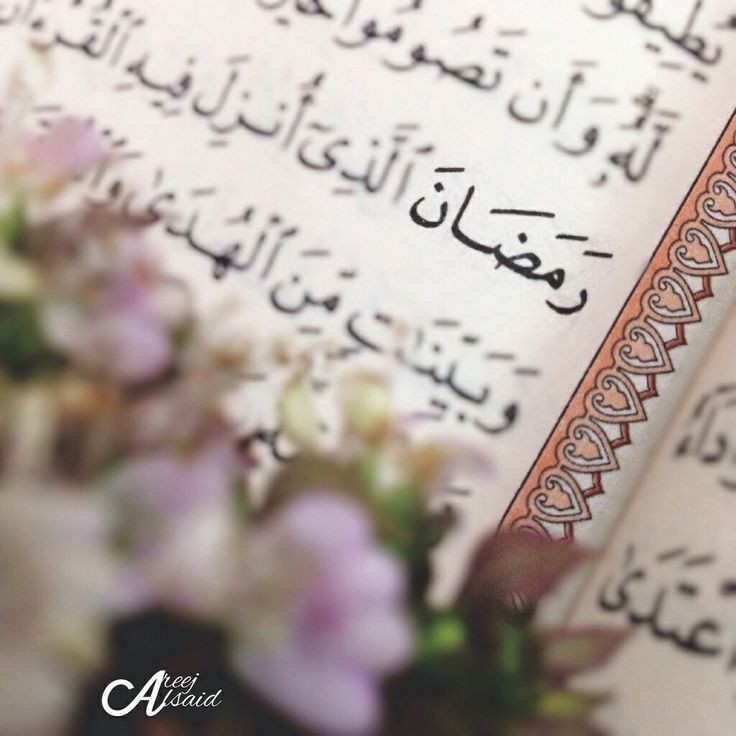 يُطِيقُو
لَّهُۥ وَأَن تَصُومُوا۟ خَيْ
رَمَضَانَ ٱلَّذِىٓ أُنزِلَ فِيهِ ٱلْقُرْءَانُ
وَبَيِّنَٰتٍ مِّنَ ٱلْهُدَىٰ
عْتَدَىٰ
Areej
Alsaid